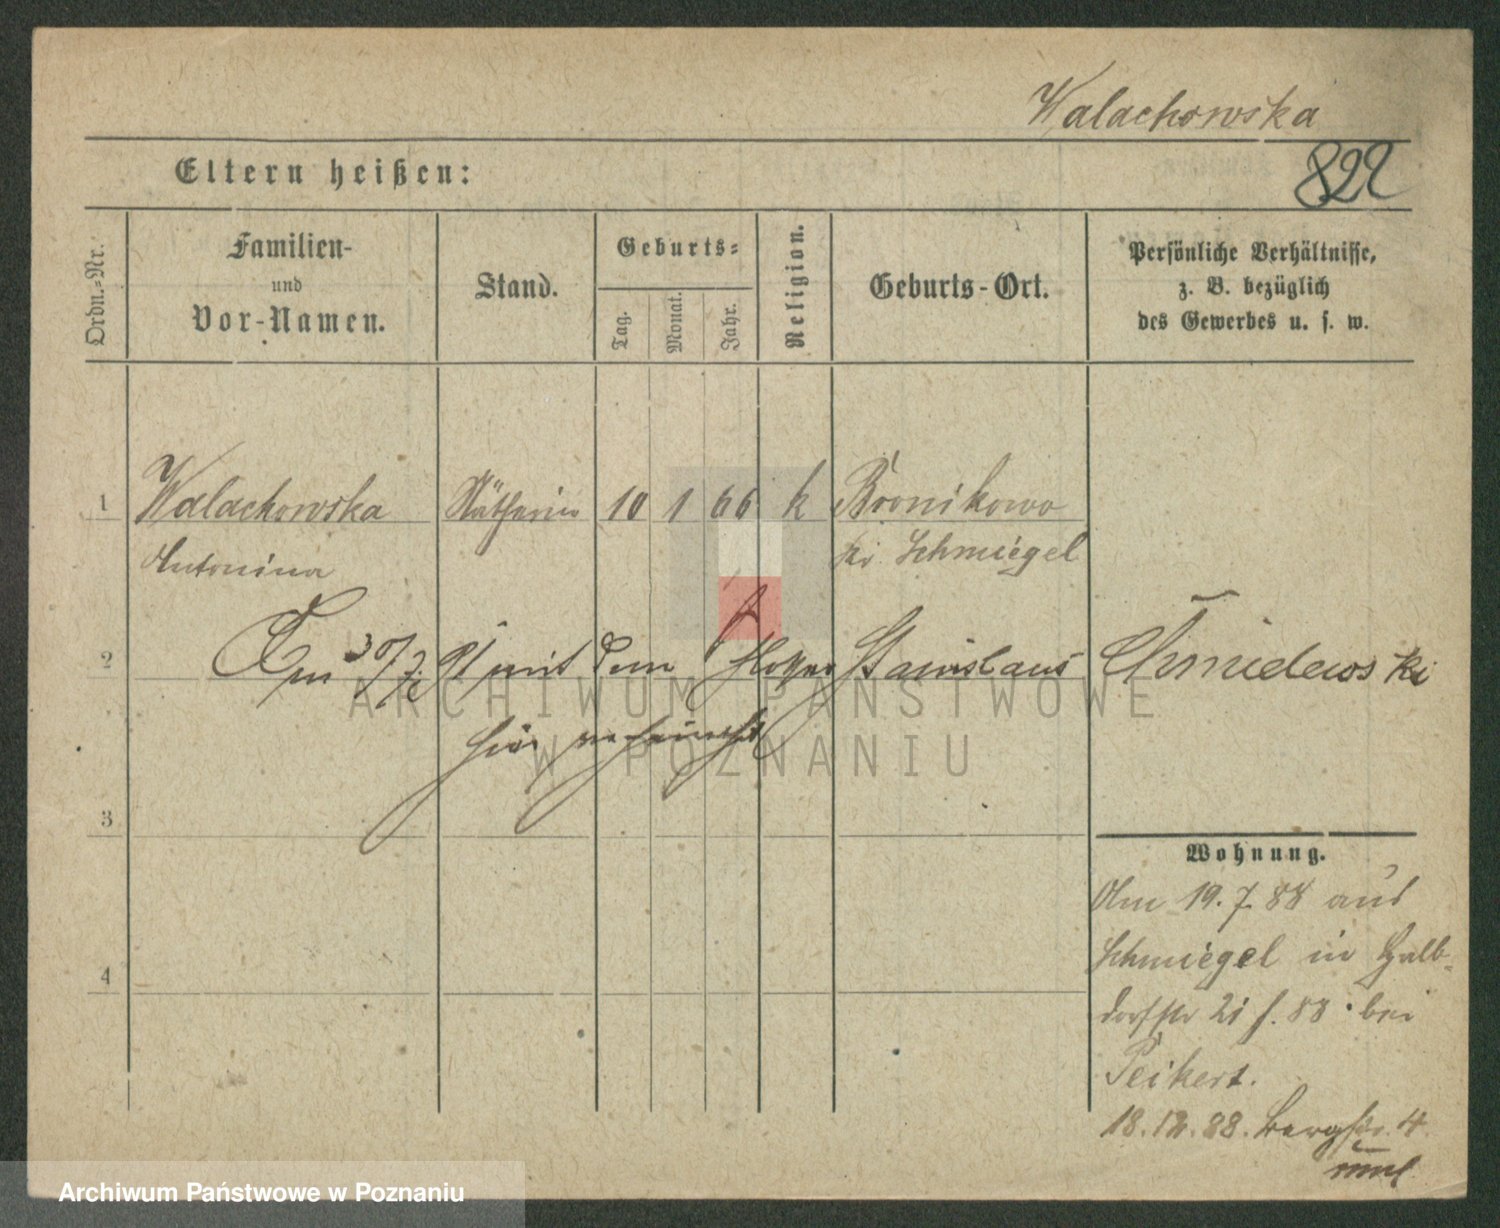 Walachowska
822
Eltern heißen:
Ordn.-Nr.
Familien-
und
Vor-Namen.
Stand.
Geburts-
Tag.
Monat.
Jahr.
Religion.
Geburts-Ort.
Persönliche Verhältnisse,
z. B. bezüglich
des Gewerbes u. s. w.
1 Walachowska Nätherin 10 1 66 k Bronikowo
Antonina Kr. Schmiegel
2 Am 30/7 91 mit dem Stanislaus Chmielewski
hier
ARCHIWUM PAŃSTWOWE
W POZNANIU
3
Wohnung.
Am 19. 7. 88 aus
Schmiegel in Halb-
dorfstr 21 f. 88 bei
4
Peikert.
18.12.88. Bergstr. 4
Archiwum Państwowe w Poznaniu